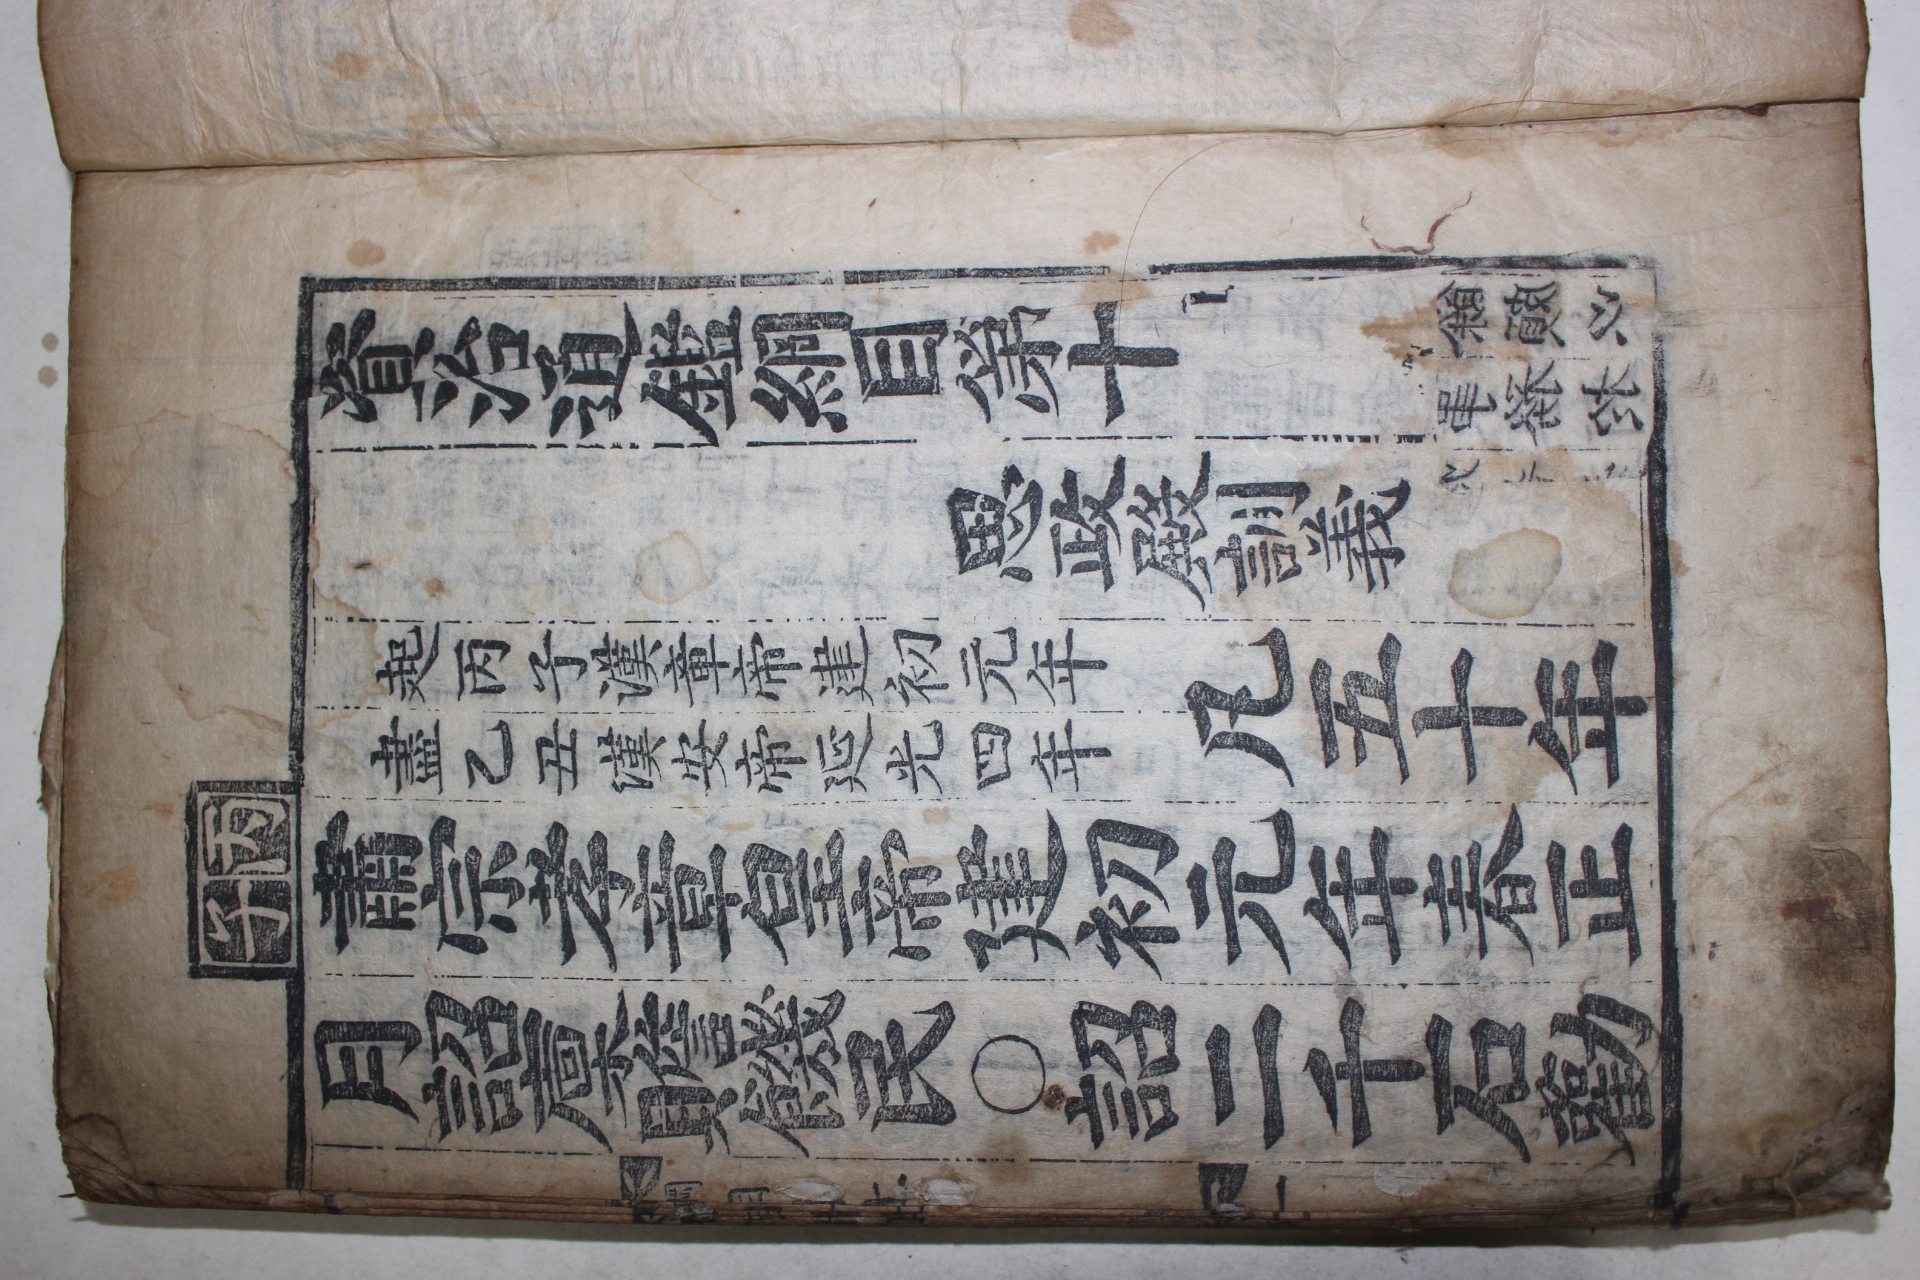 資治通鑑綱目第十
思政殿訓義
起丙子漢章帝建初元年
盡乙丑漢安帝延光四年
凡五十年
丙子
肅宗孝章皇帝建初元年春正
月詔稟贍饑民○詔二千石勸
餘頗以
事務於
綱目
一